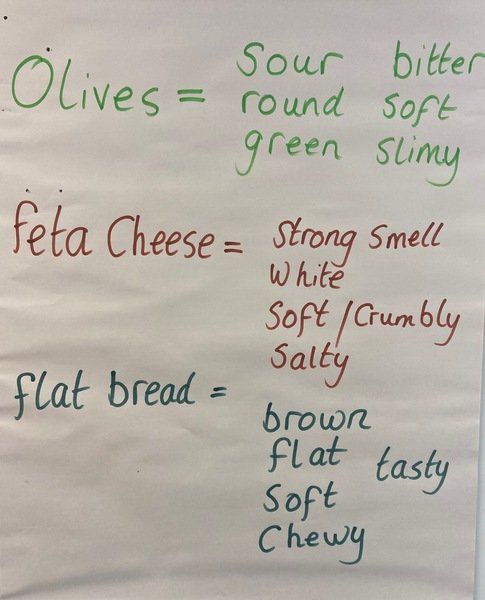 Olives = Sour bitter
round soft
green slimy
feta Cheese = Strong Smell
White
Soft / Crumbly
Salty
flat bread =
brown
flat tasty
Soft
Chewy